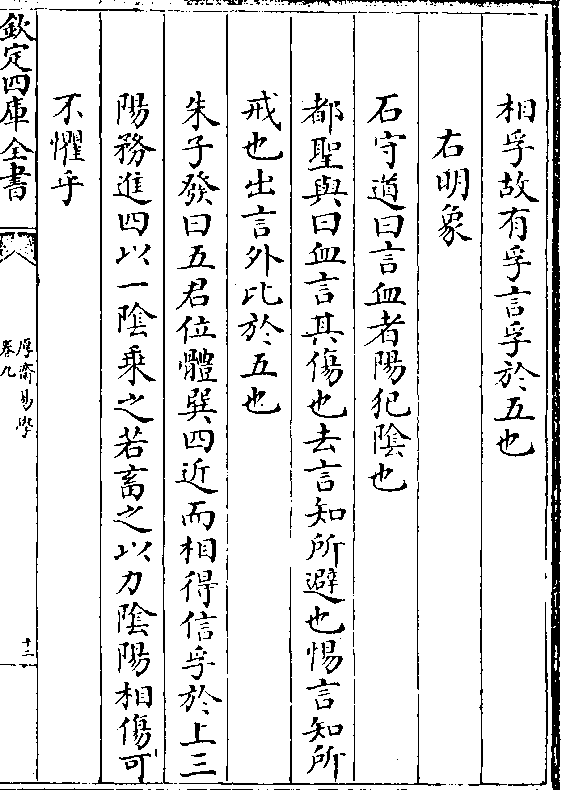 相孚故有孚言孚於五也
右明象
石守道曰言血者陽犯陰也
都聖與曰血言其傷也去言知所避也惕言知所
戒也出言外比於五也
朱子發曰五君位體巽四近而相得信孚於上三
陽務進四以一陰乗之若畜之以力陰陽相傷可
不懼乎
欽定四庫全書
厚齋易學
卷九
十三